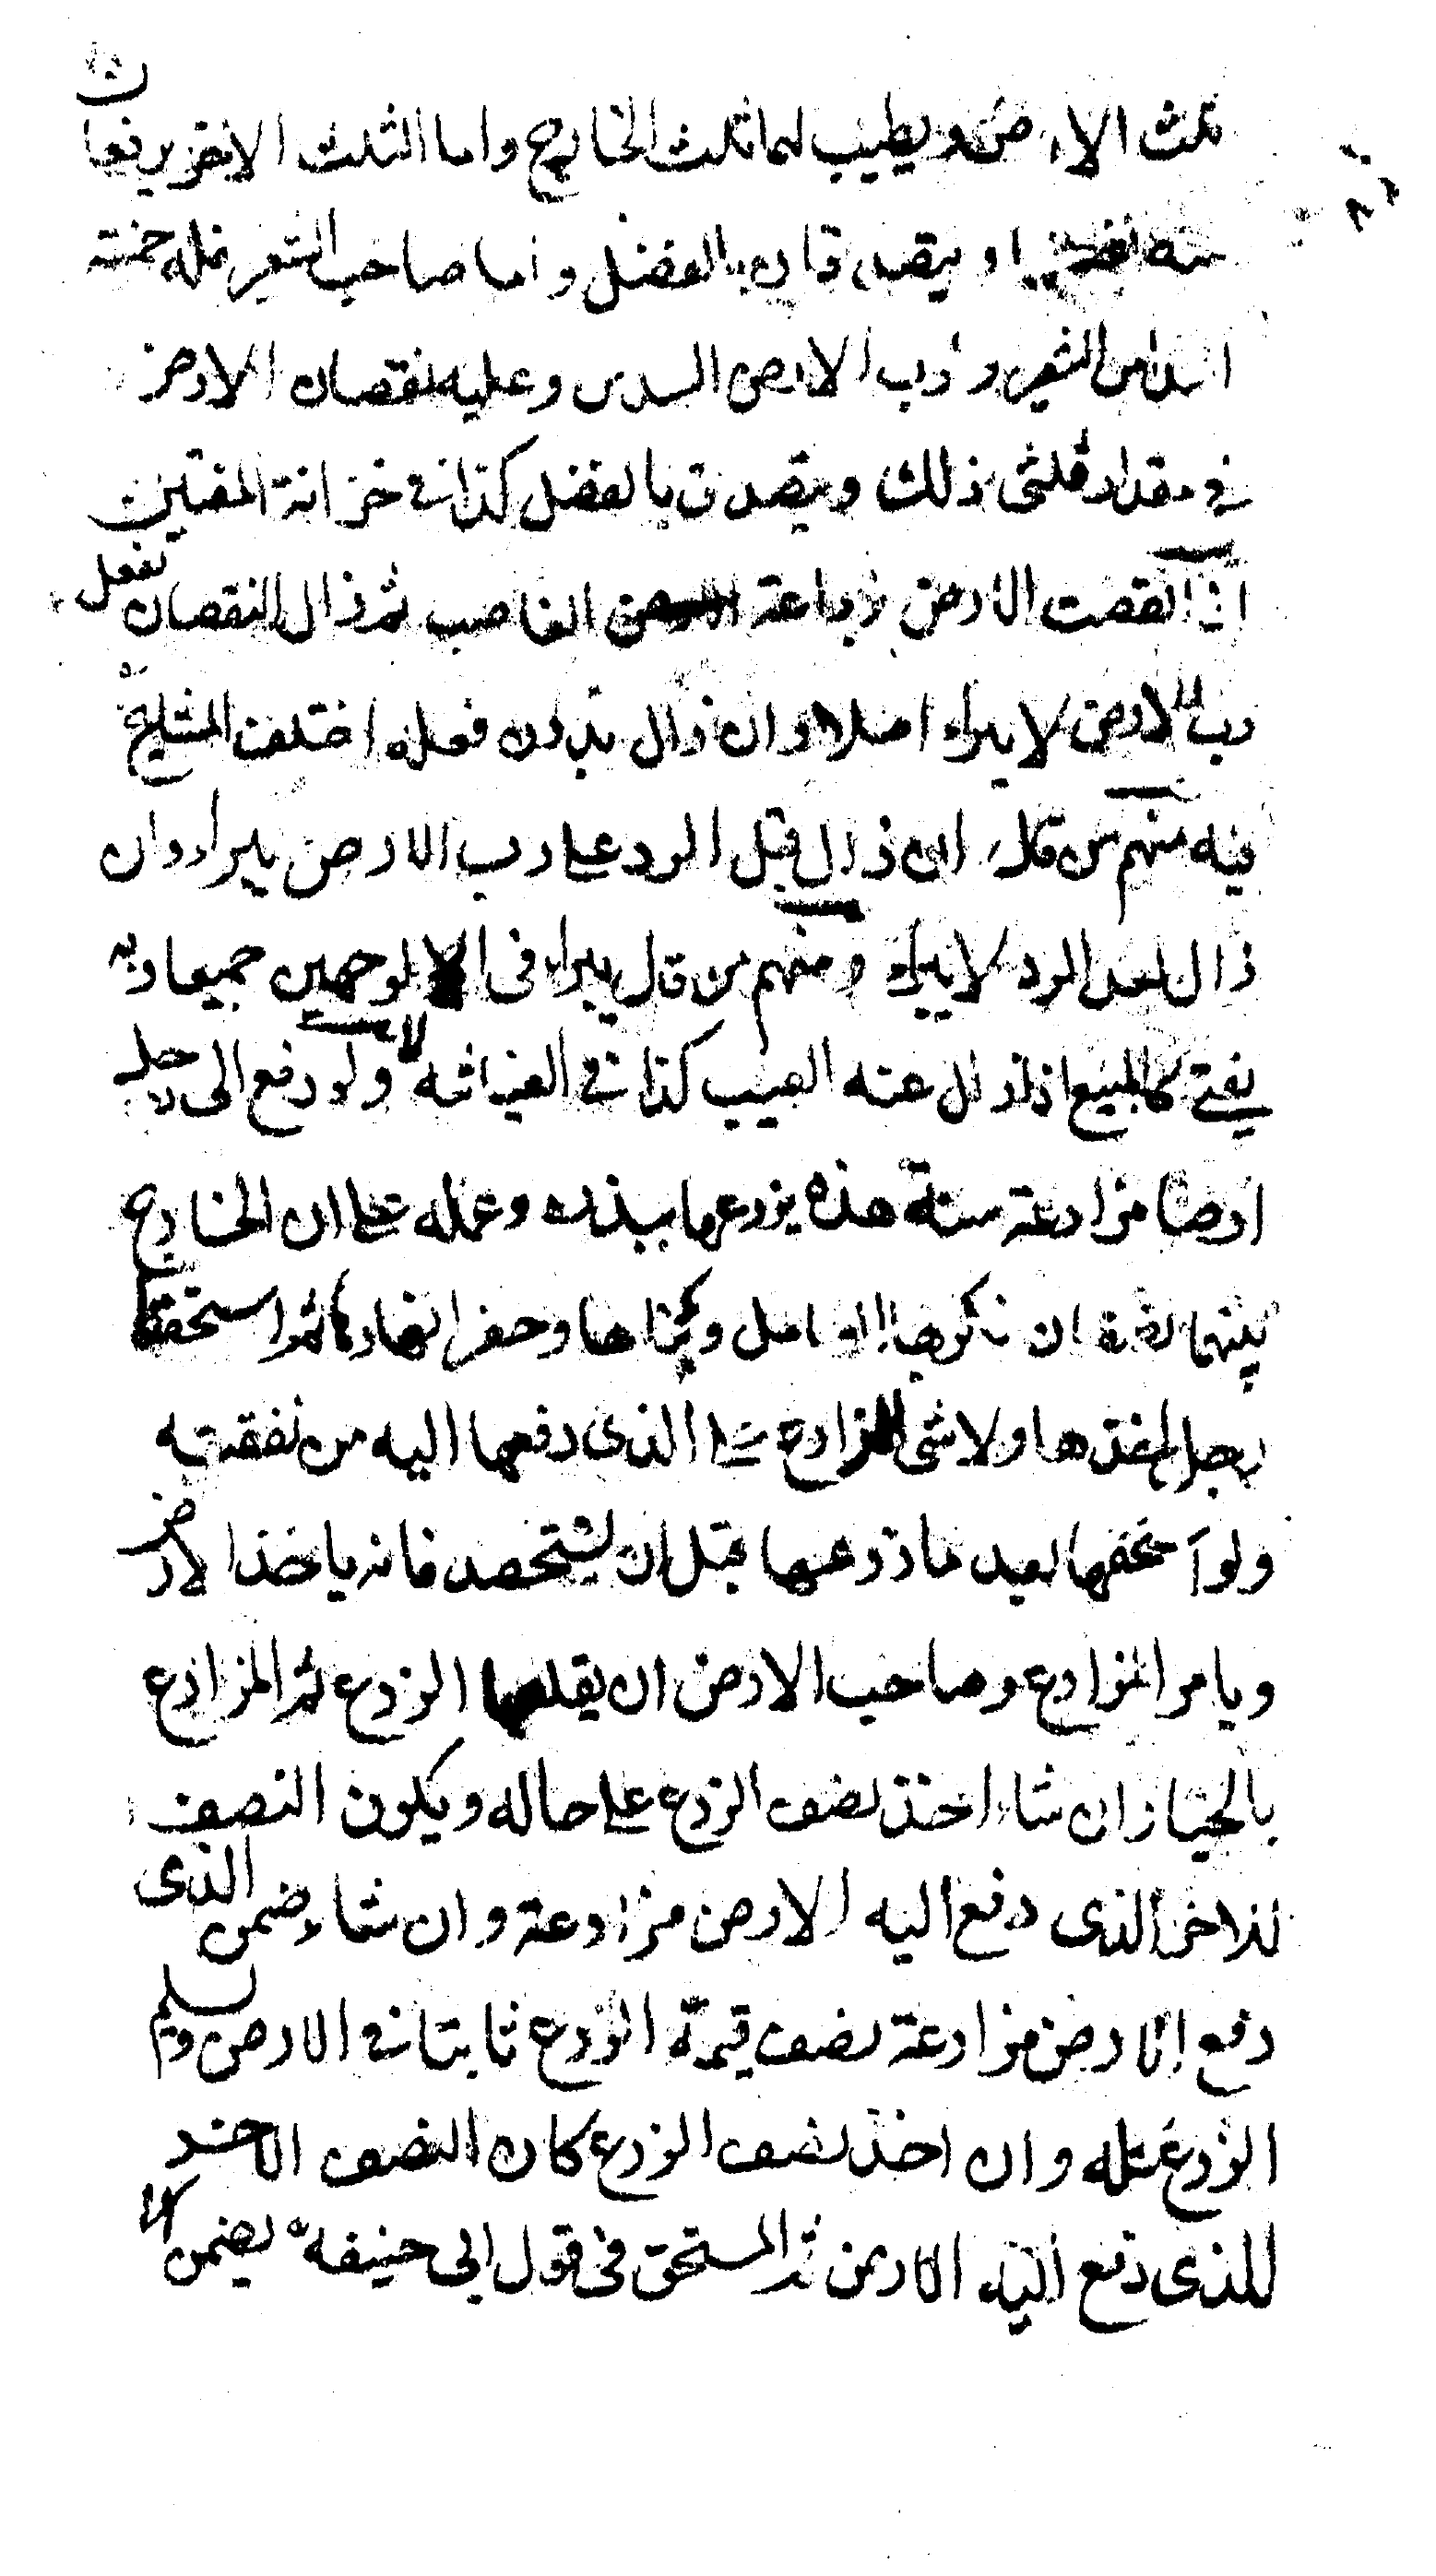 ثلث الارض ويطيب لهما ثلث الخارج واما الثلث الاخر يرفعان
منه نفقتهما ويتصدقان بالفضل واما صاحب الشعير فله خمسة
اسداس الشعير ورب الارض السدس وعليه نقصان الارض
في مقدار ثلثى ذلك ويتصدق بالفضل كذا في خزانة المفتين
اذا انقصت الارض زراعة الغاصب ثم زال النقصان بفعل
رب الارض لا يبراء اصلا وان زال بدون فعله اختلف المشايخ
فيه منهم من قال ان زال قبل الرد على رب الارض يبراء وان
زال بعد الرد لا يبراء ومنهم من قال يبراء في الوجهين جميعا وبه
يفتى كالمبيع اذا زال عنه العيب كذا في الغياثيه ولو دفع الى رجل
ارضا مزارعة سنة هذه يزرعها ببذره وعمله على ان الخارج
بينهما نصفان فكربها العامل وبناها وحفر انهارها ثم استحقها
رجل اخذها ولا شى للمزارع على الذى دفعها اليه من نفقته
ولو استحقها بعد ما زرعها قبل ان يستحصد فانه ياخذ الارض
ويامر المزارع وصاحب الارض ان يقلعا الزرع ثم المزارع
بالخيار ان شاء اخذ نصف الزرع على حاله ويكون النصف
للاخر الذى دفع اليه الارض مزارعة وان شاء ضمن الذى
دفع الارض مزارعة نصف قيمة الزرع نابتا في الارض ويسلم
الزرع كله وان اخذ نصف الزرع كان النصف الاخر
للذى دفع اليه الارض ثم المستحق في قول ابى حنيفه يضمن